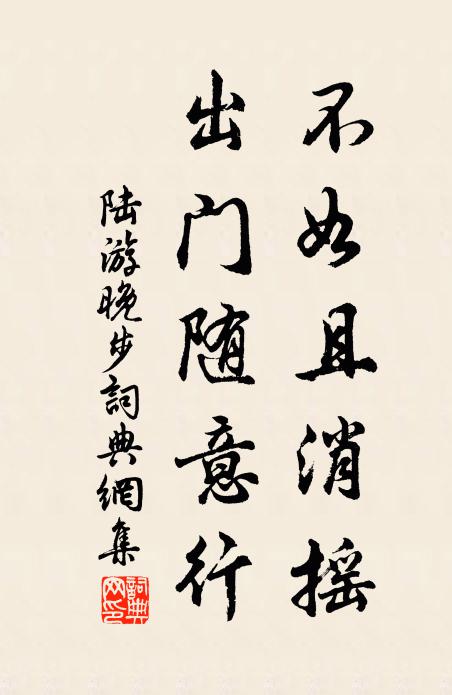 不如且消摇
出门随意行
陆游晚步詞典網集
詞典网印